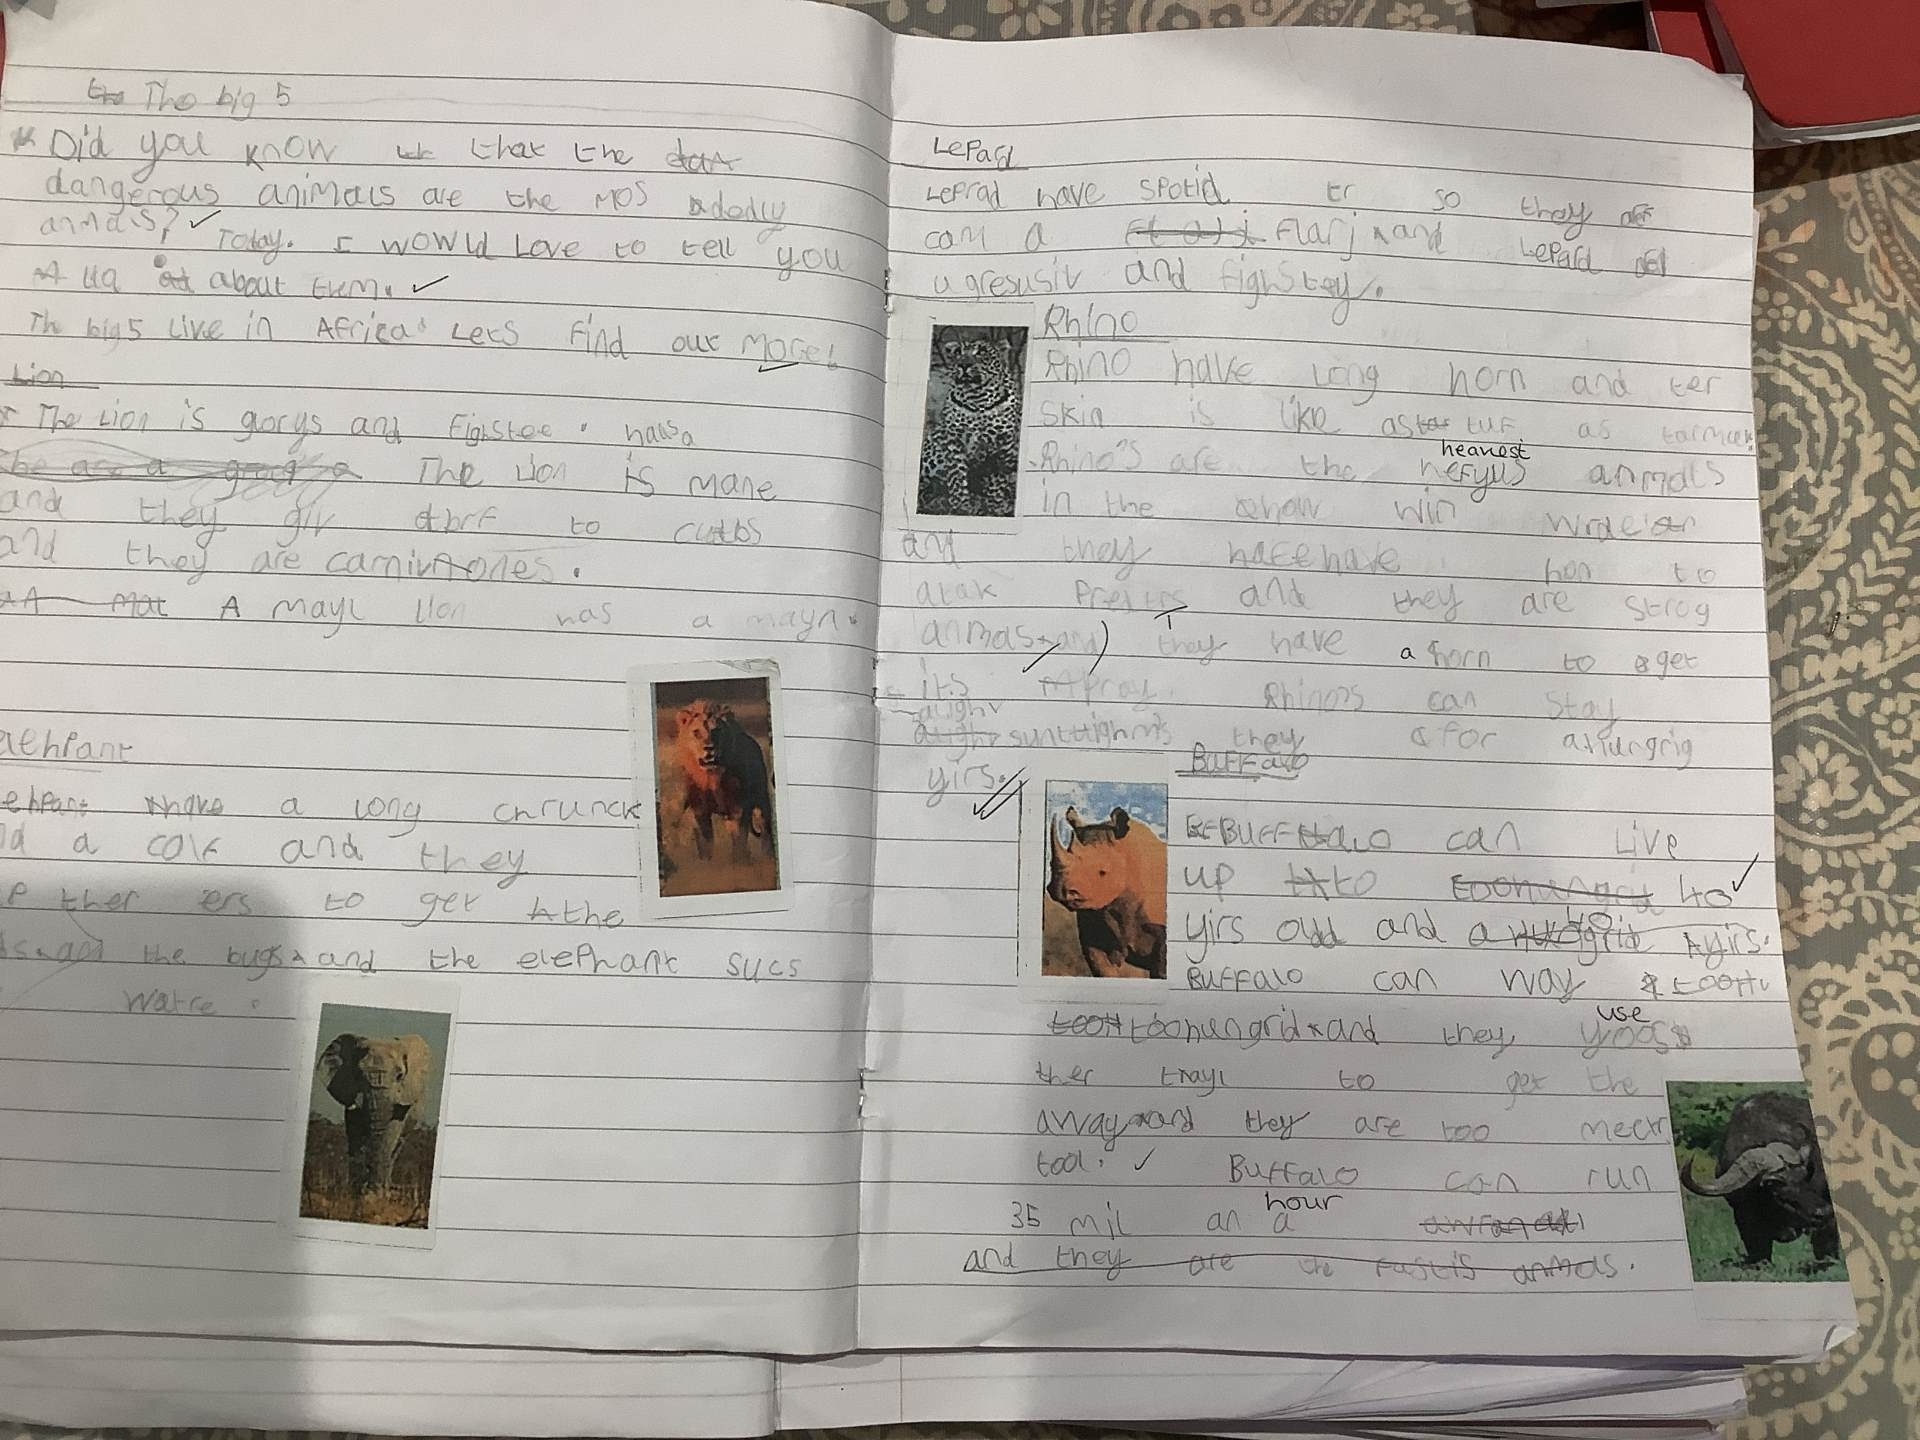 The big 5
Did you know that the
dangerous animals are the mos dedly
anmals? Today. I would Love to tell you
about them.
The big 5 Live in Africa Lets find out more!
Lion
The Lion is gorys and Fighstee. has a
The Lion is mane
and they giv to cubs
and they are carnivrones.
A mayl lion has a mayn.
aehpant
ehpant have a long chrunck
a calf and they
ther ers to get the
the bugs and the elephant sucs
Watre.
Lepard
Leprad have spotid so they
cam a Flarj and Lepard
ugresusiv and fighstey.
Rhino
Rhino have long horn and ter
skin is like as tuf as tarmck
heavest
Rhino's are the hefyus animals
in the win
and they have hon to
atak and they are strog
anmas and they have a horn to get
its pray. Rhino's can stay
they for ahungrig
yirs.
Buffalo
Buffalo can Live
up to toohungrid 40
40
yirs old and a yirs.
Buffalo can way
use
toohungrid and they yoos
ther trayl to get the
away and they are too
tool. Buffalo can run
hour
35 mil an a
and they are the fastis anmals.